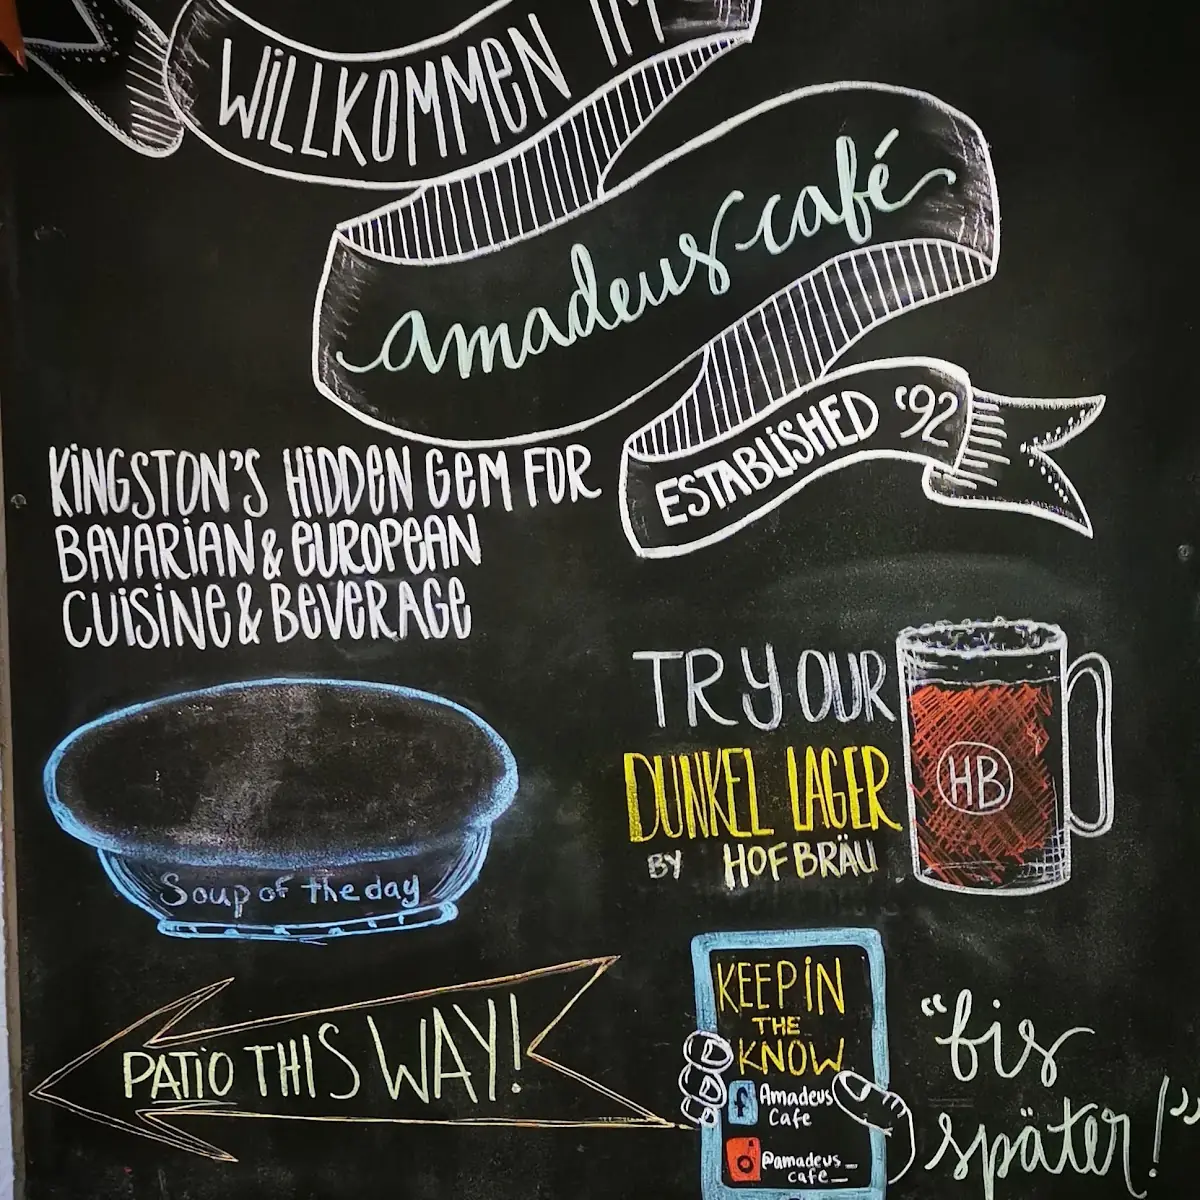 WILLKOMMEN IM
amadeus café
ESTABLISHED '92
KINGSTON'S HIDDEN GEM FOR
BAVARIAN & EUROPEAN
CUISINE & BEVERAGE
TRY OUR
DUNKEL LAGER
BY HOFBRÄU
HB
Soup of the day
PATIO THIS WAY!
KEEP IN
THE
KNOW
f Amadeus
Cafe
@amadeus_
cafe_
"bis
später!"